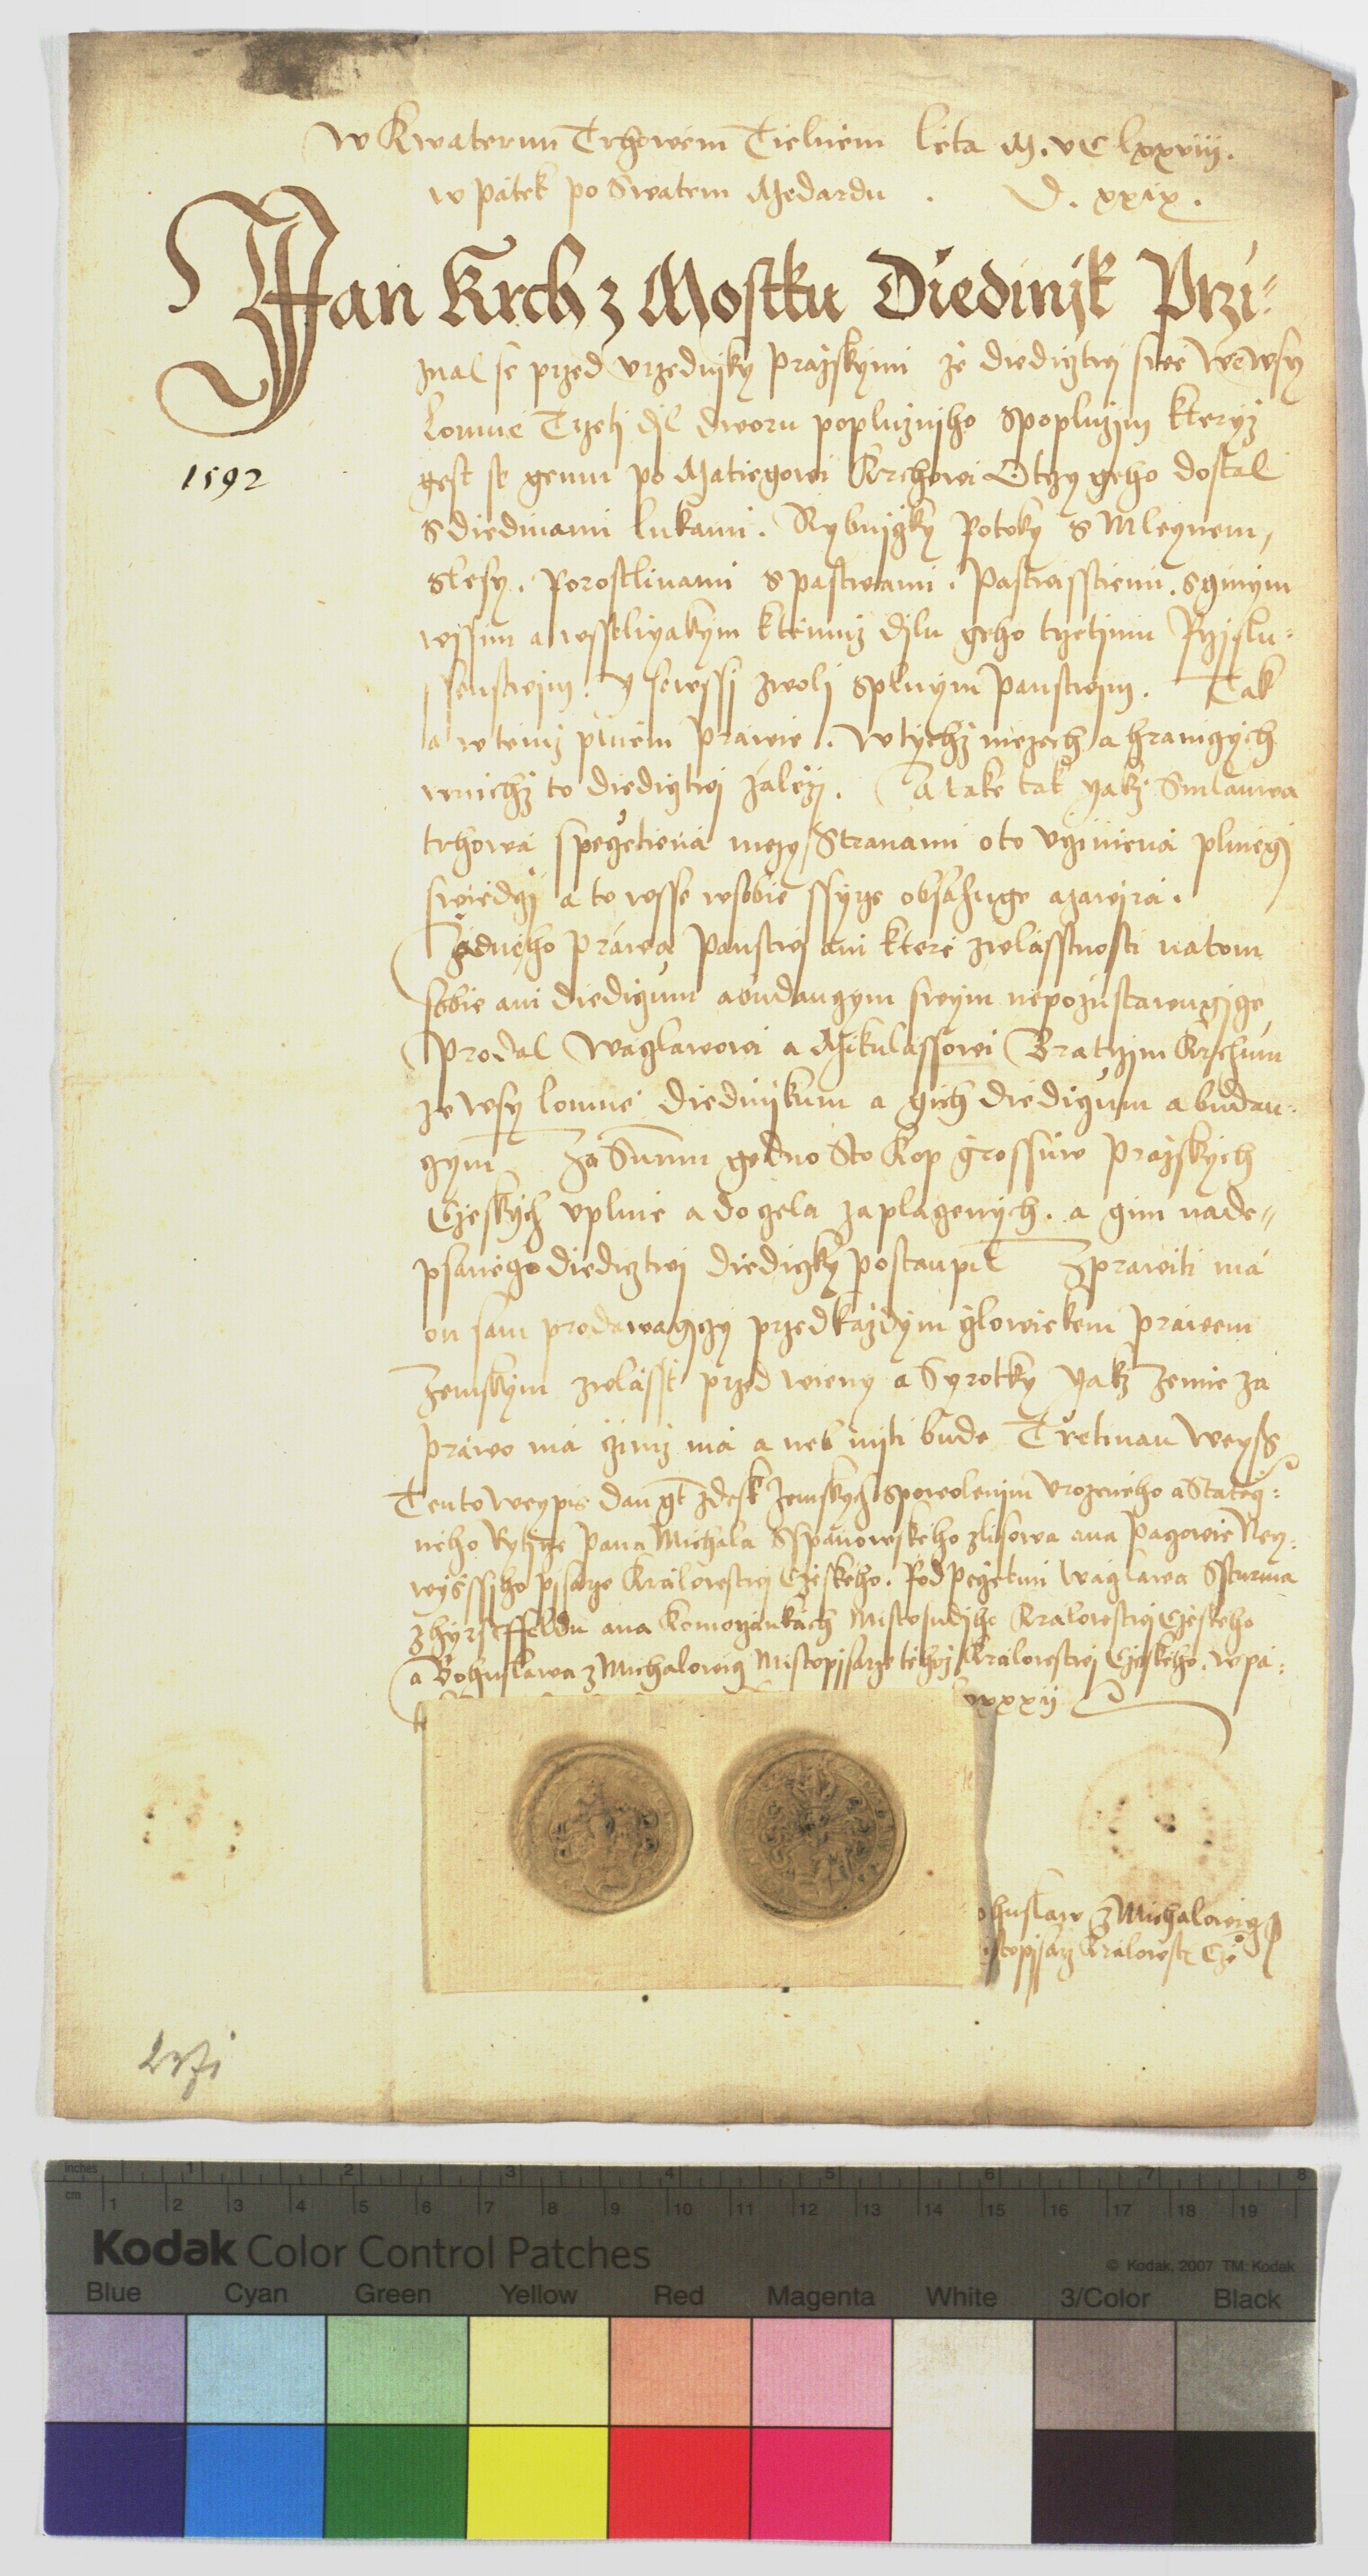 w Kwaternu Trhowem Tielnem léta M. vC lxxviij.
w pátek po Swatem Medardu . D. xxix.
Jan Krch z Mostku Diedinjk Przi-
znal se przed vrzednjky Prażskými że diedicztwj swé we wsy
Lomné Trzetj djl dworu poplużnjho s poplużjm kteryż
gest se gemu po Matiegowi Krchowi Otczy geho dostal
s diedinami lukami . Rybnjczky Potoky s Mleynem,
s lesy . Porostlinami s pastwami . Pastwisstiemi . s giným
wssim a wsseliyakým k témuż djlu geho trzetjmu Przjslu-
ssenstwjm . y se wssj zwolj s plným panstwjm . Tak
a w témż plném práwie . w týchż mezech a hranigých
w nichż to diedicztwj záleżj . A také tak yakż Smlauwa
trhowá s peczetiená mezy Stranami o to vcziniená plniegj
swiedczj a to wsse w sobie ssyrze obsahuge a zawjrá .
Żádného práwa Panstwj ani które zwlásstnosti na tom
sobie ani diediczům a budaucým swým nepozůstawugjge
Prodal Wáczlawowi a Mikulássowi Bratrzjm Krchům
ze wsy Lomné diednjkum a gich diediczům a budau-
czým Za Summu gedno Sto Kop grossůw Prażských
Czeských vplnie a docela zaplacených . a gim nade-
psaného diedicztwj diediczky postaupil Zprawiti má
on sám prodáwagjczy przed każdým czlowiekem práwem
Zemským zwlásst przed wieny a Syrotky yakż Zemie za
práwo má czimż má a neb mjti bude Trzetinau weyss
Tento weypis dan gt z desk Zemských s powolenjm vrozeného a Statecz-
ného Rytjrze Pana Michala Sspanowského z Lisowa a na Pacowie Ney-
wyssjho pjsarze Králowstwj Czeského . Pod Peczetmi Wáczlawa Ssturma
z Hyrssfeldu a na Komorzánkách Mistosudjho Králowstwj Czeského
a Bohuslawa z Michalowicz Mistopjsarze téhoż Králowstwj Czeského . w pá-
xxxij
1592
ohuslaw z Michalowicz
stopjsarz Králowstw Cze
inches 1 2 3 4 5 6 7 8
cm 1 2 3 4 5 6 7 8 9 10 11 12 13 14 15 16 17 18 19
Kodak Color Control Patches
© Kodak, 2007 TM: Kodak
Blue Cyan Green Yellow Red Magenta White 3/Color Black